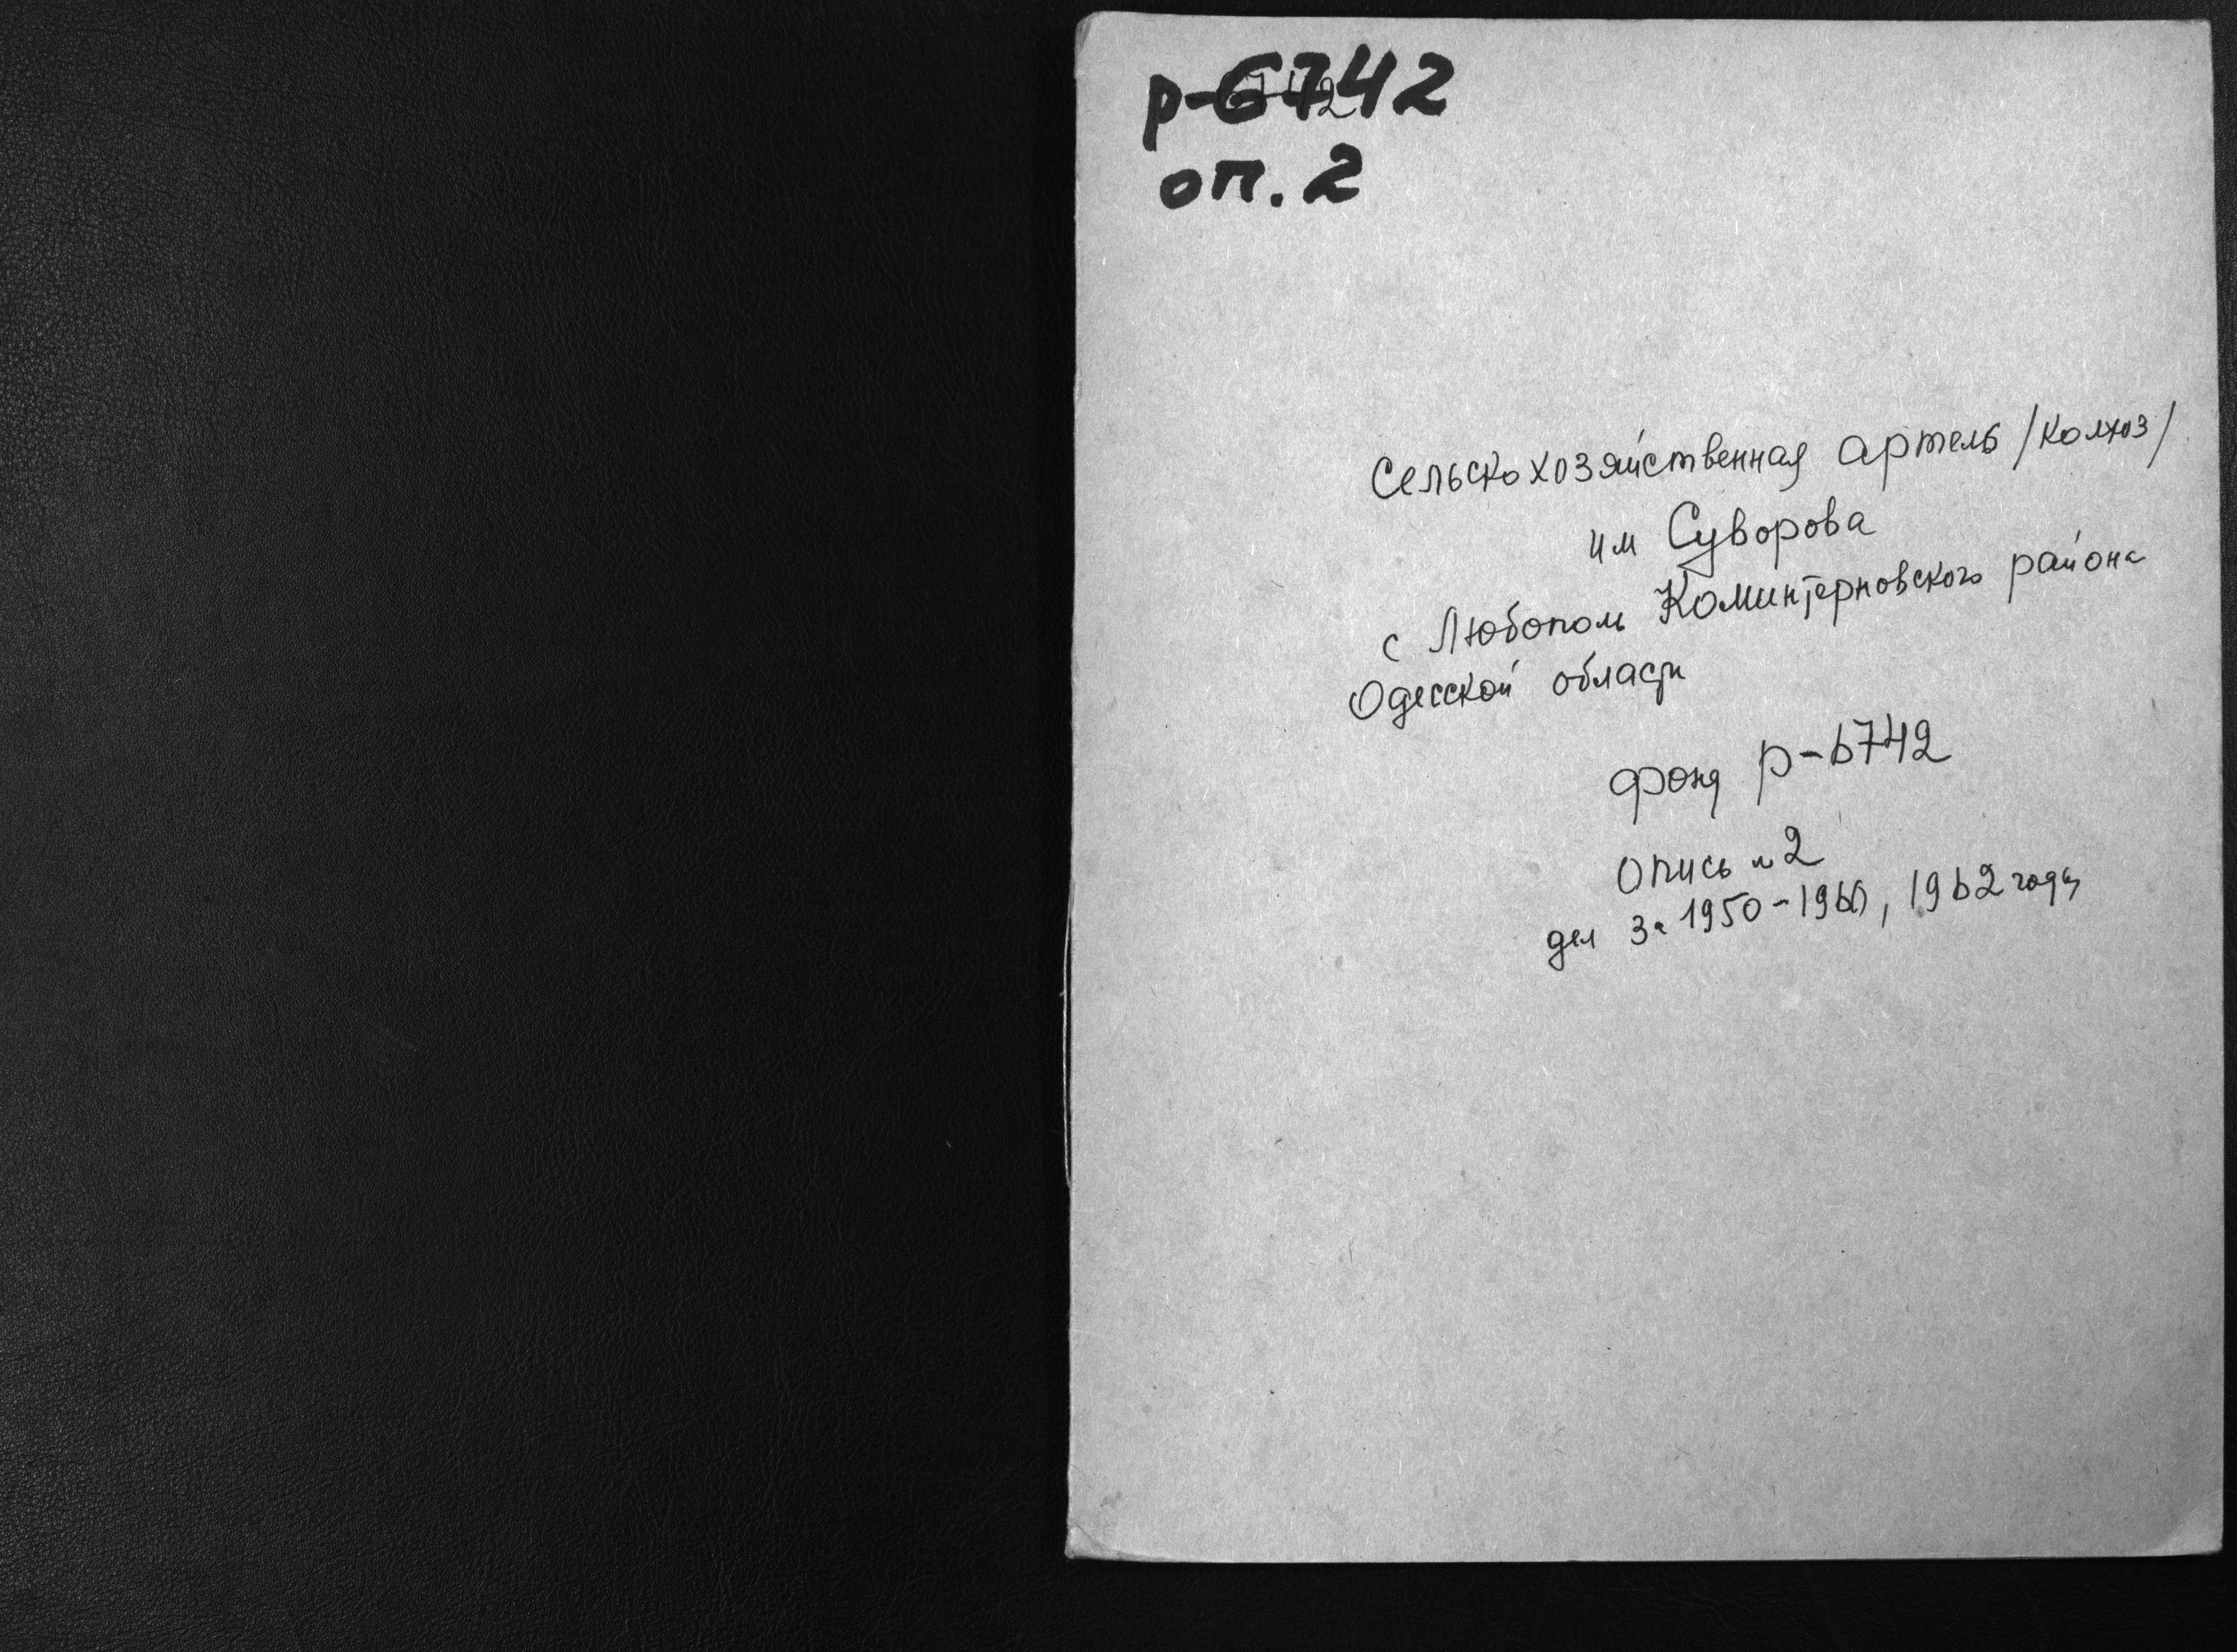 р-6742
оп. 2
Сельскохозяйственная артель /колхоз/
им Суворова
с Любополь Коминтерновского района
Одесской области
Фонд р-6742
Опись №2
дел за 1950-1960, 1962 годы